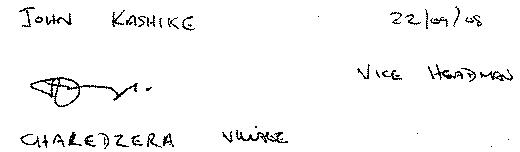 JOHN KASHIKE 22/09/08
VICE HEADMAN
CHAREDZERA